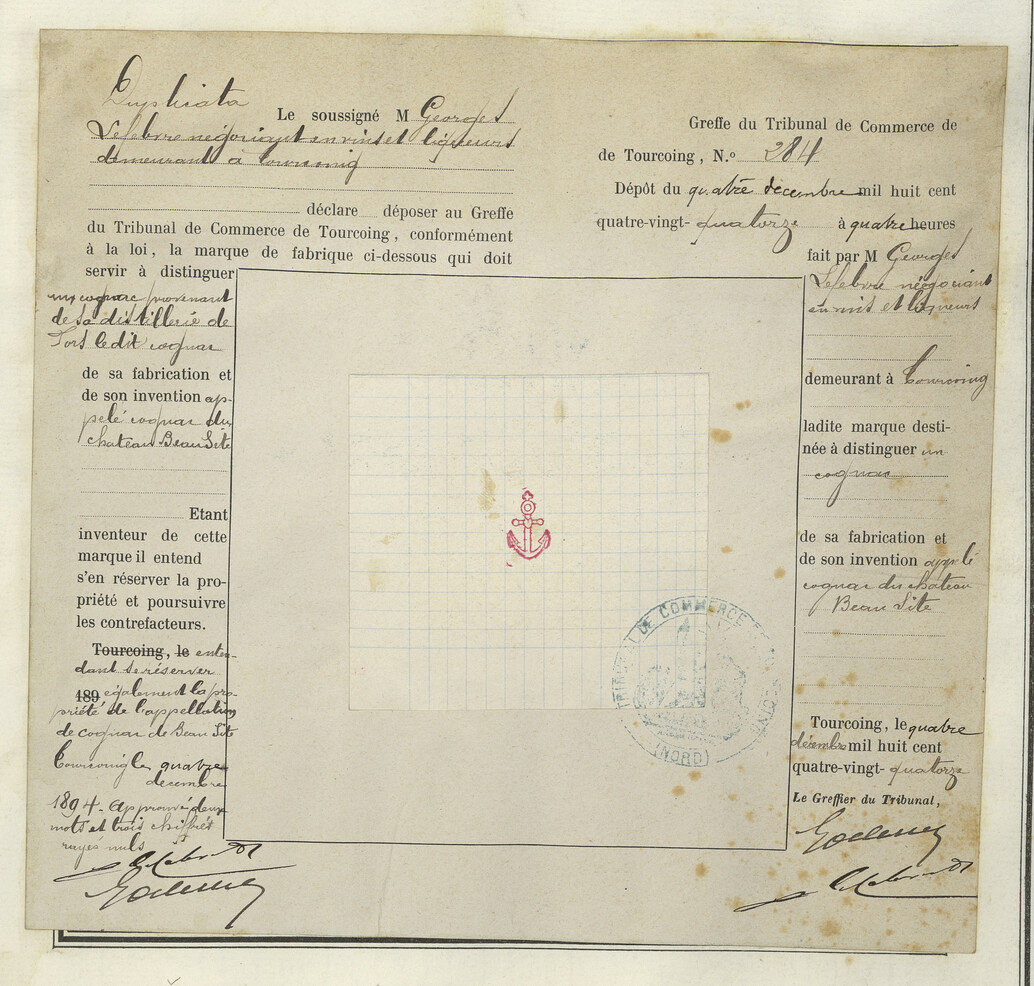 Duplicata
Le soussigné M Georges
Lefebvre négociant en vins et liqueurs
demeurant à Tourcoing
déclare déposer au Greffe
du Tribunal de Commerce de Tourcoing, conformément
à la loi, la marque de fabrique ci-dessous qui doit
servir à distinguer
un cognac provenant
de sa distillerie de
ledit cognac
de sa fabrication et
de son invention ap-
pelé cognac du
chateau Beau Site
Etant
inventeur de cette
marque il entend
s'en réserver la pro-
priété et poursuivre
les contrefacteurs.
Tourcoing, le enten-
dant se réserver
189 également la pro-
priété de l'appellation
de cognac de Beau Site
Tourcoing le quatre
décembre
1894. Approuvé deux
mots et trois chiffres
rayés nuls
Greffe du Tribunal de Commerce de
de Tourcoing, N.o 284
Dépôt du quatre décembre mil huit cent
quatre-vingt-quatorze à quatre heures
fait par M Georges
Lefebvre négociant
en vins et liqueurs
demeurant à Tourcoing
ladite marque desti-
née à distinguer un
cognac
de sa fabrication et
de son invention appelé
cognac du chateau
Beau Site
Tourcoing, le quatre
décembre mil huit cent
quatre-vingt-quatorze
Le Greffier du Tribunal,
TRIBUNAL DE COMMERCE DE
(NORD)